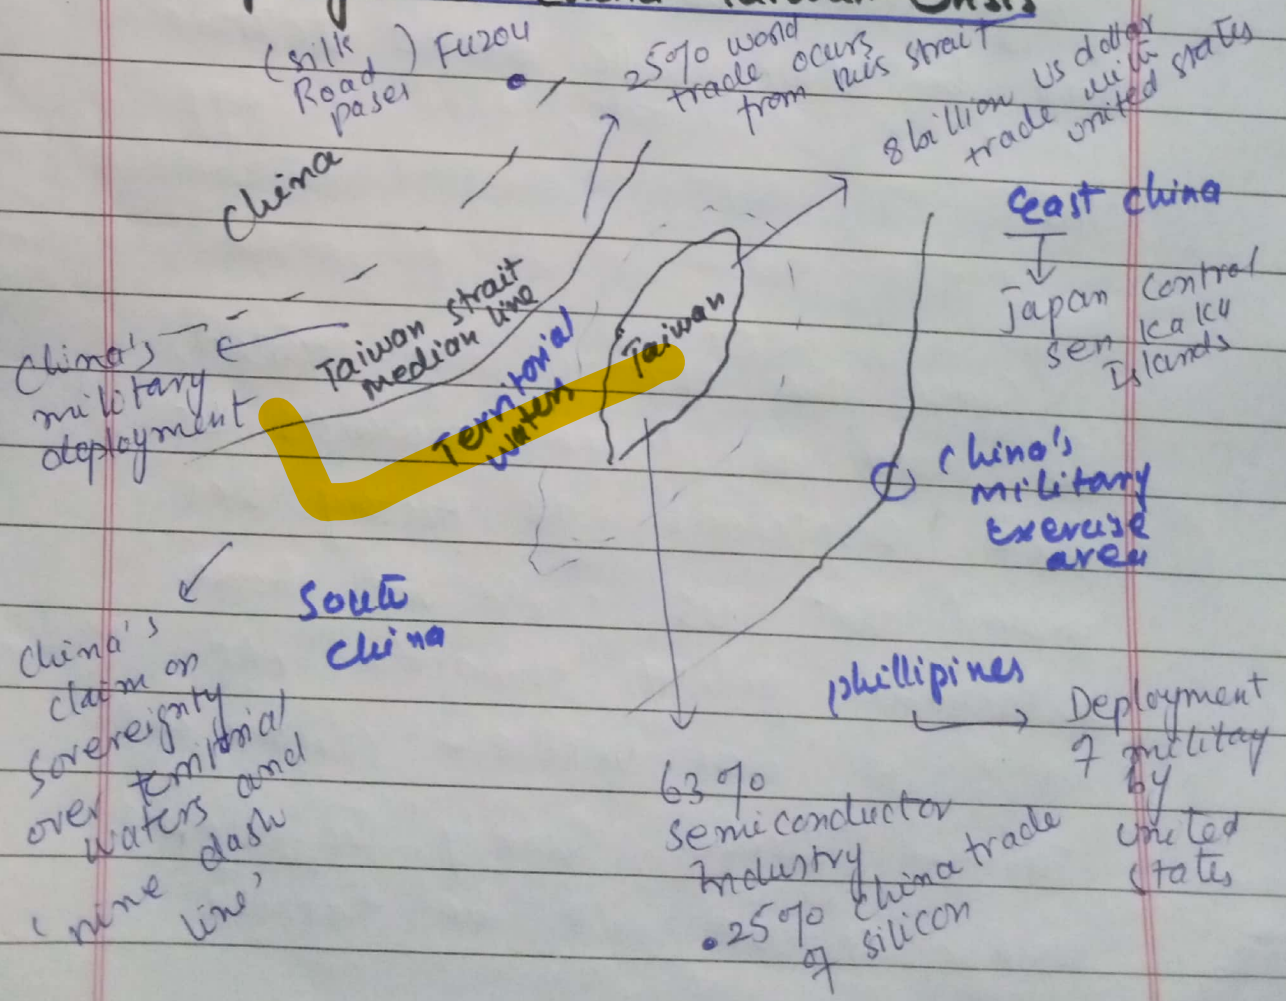 China Taiwan Crisis
(silk
Road
pases)
Fuzou
25% world
trade occurs
from this strait
8 billion US dollar
trade with
united states
China
East China
Japan control
senkaku
Islands
Taiwan strait
median line
Territorial
waters
Taiwan
China's
military
deployment
China's
military
Exercise
area
South
China
China's
claim on
sovereignty
over territorial
waters and
'nine dash
line'
phillipines
Deployment
of military
by
united
states
63%
semiconductor
Industry
.25% China trade
of silicon